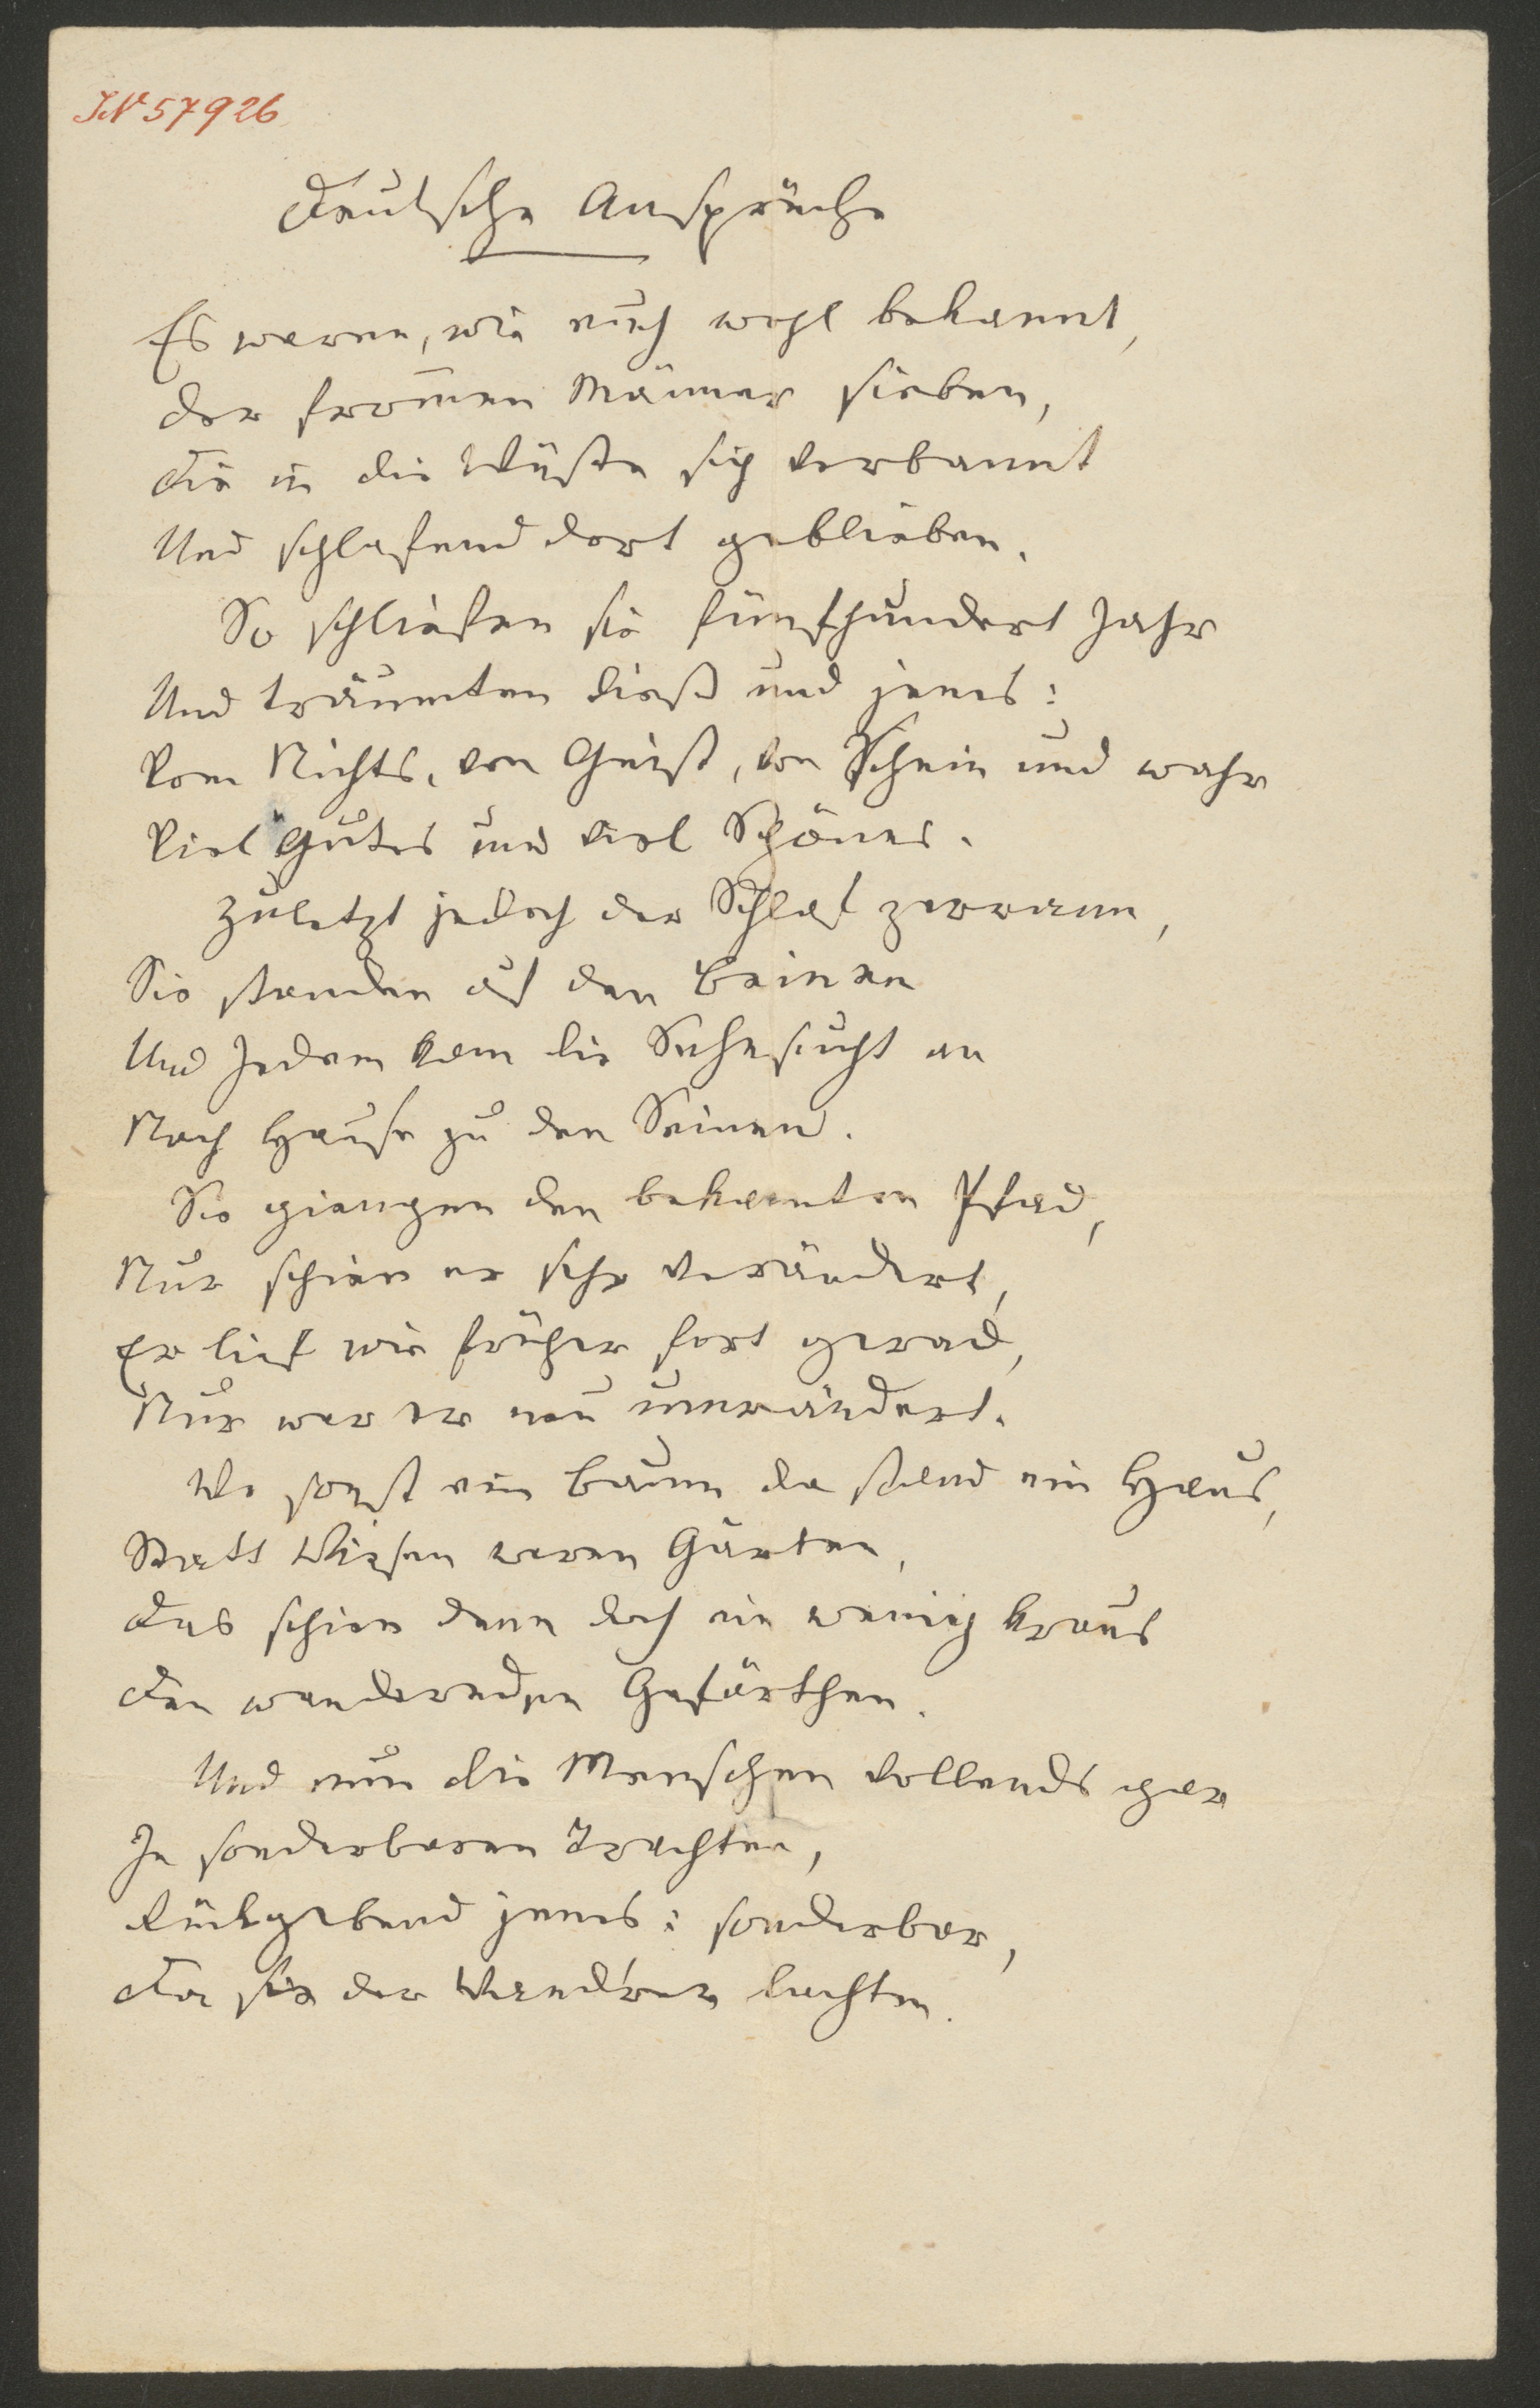 IN 57926
Deutsche Ansprüche
Es waren, wie euch wohl bekannt,
Der from̄en Männer sieben,
Die in die Wüste sich verbannt
Und schlafend dort geblieben.
So schliefen sie fünfhundert Jahr
Und träumten dieß und jenes:
Vom Nichts, von Geist, von Schein und wahr
Viel Gutes und viel Schönes.
Zuletzt jedoch der Schlaf zerrann,
Sie standen auf den Beinen
Und Jedem kam die Sehnsucht an
Nach Hause zu den Seinen.
Sie giengen den bekannten Pfad,
Nur schien er sehr verändert,
Er lief wie früher fort gerad,
Nur war er neu umrändert.
Wo sonst ein Baum da stand ein Haus,
Statt Wiesen waren Gärten,
Das schien denn doch ein wenig kraus
Den wandernden Gefärthen.
Und nun die Menschen vollends gar
In sonderbaren Trachten,
Rückgebend jenes: sonderbar,
Da sie der Wandrer lachten.